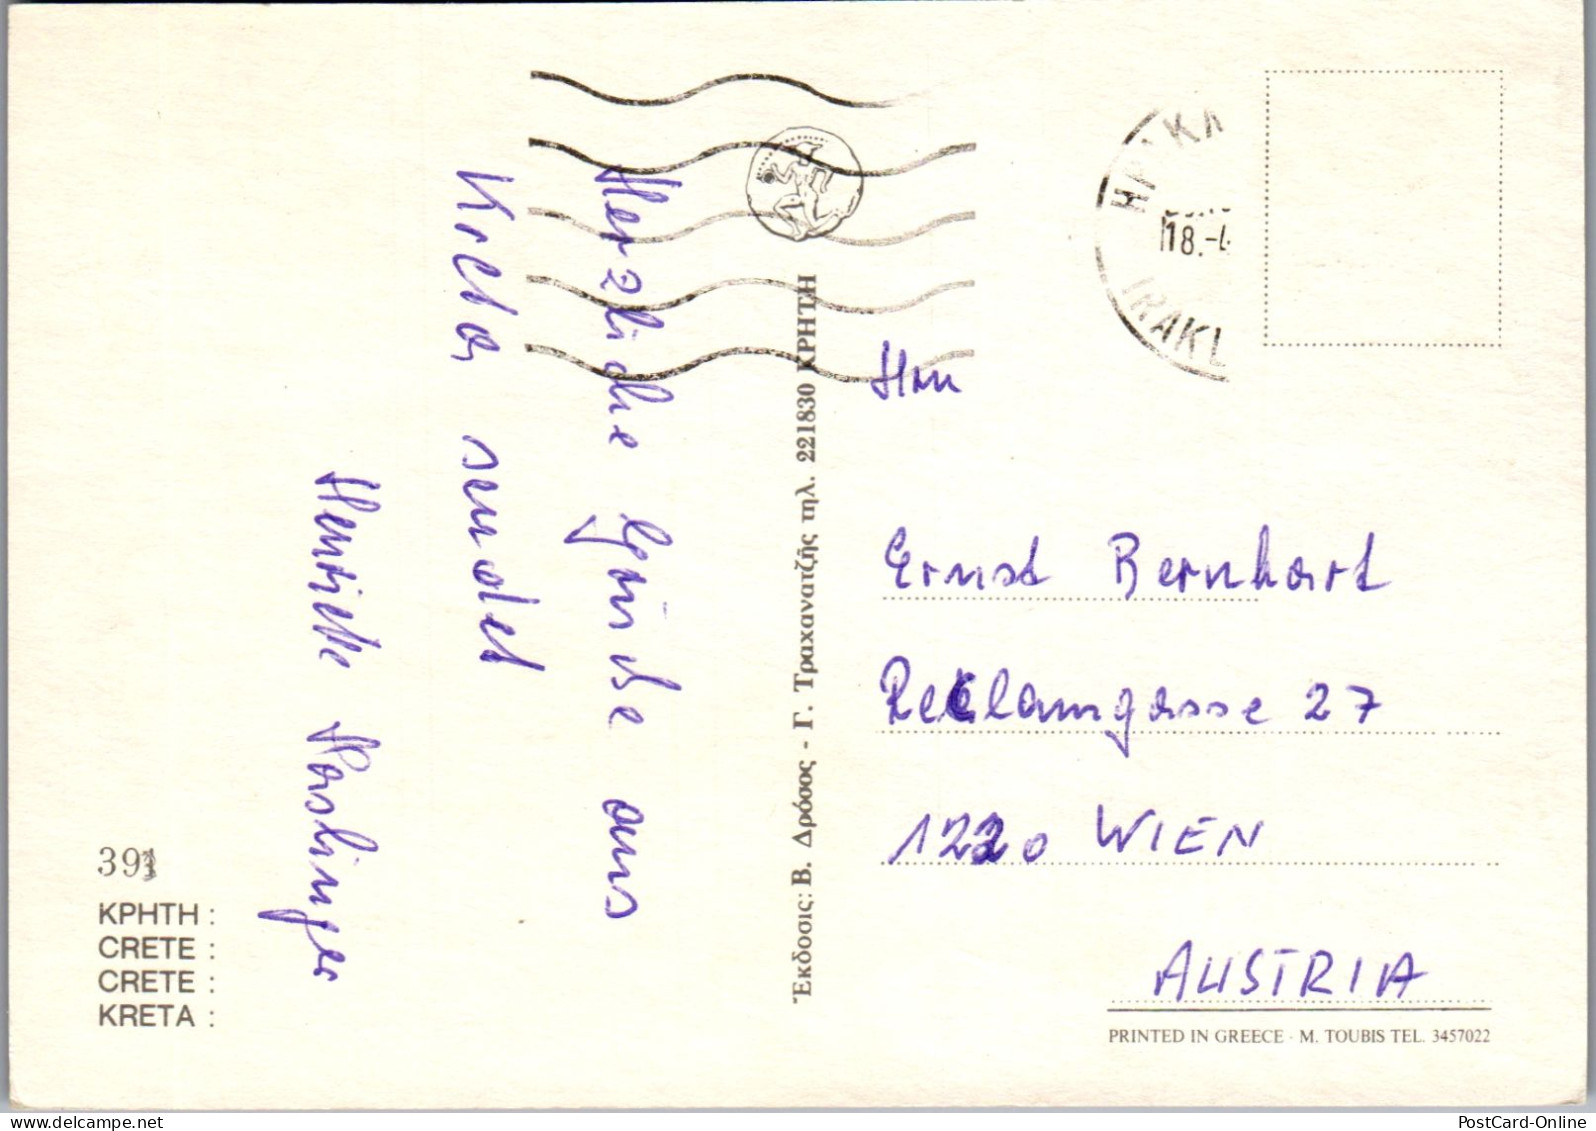 Herzliche Grüße aus
Kreta sendet
Henriette Haslinger
391
ΚΡΗΤΗ :
CRETE :
CRETE :
KRETA :
Ἔκδοσις: Β. Δρόσος - Γ. Τραχανατζῆς τηλ. 221830 ΚΡΗΤΗ
18.-4
IRAKL
Herrn
Ernst Bernhart
Reklamgasse 27
1220 WIEN
AUSTRIA
PRINTED IN GREECE - M. TOUBIS TEL. 3457022
PostCard-Online